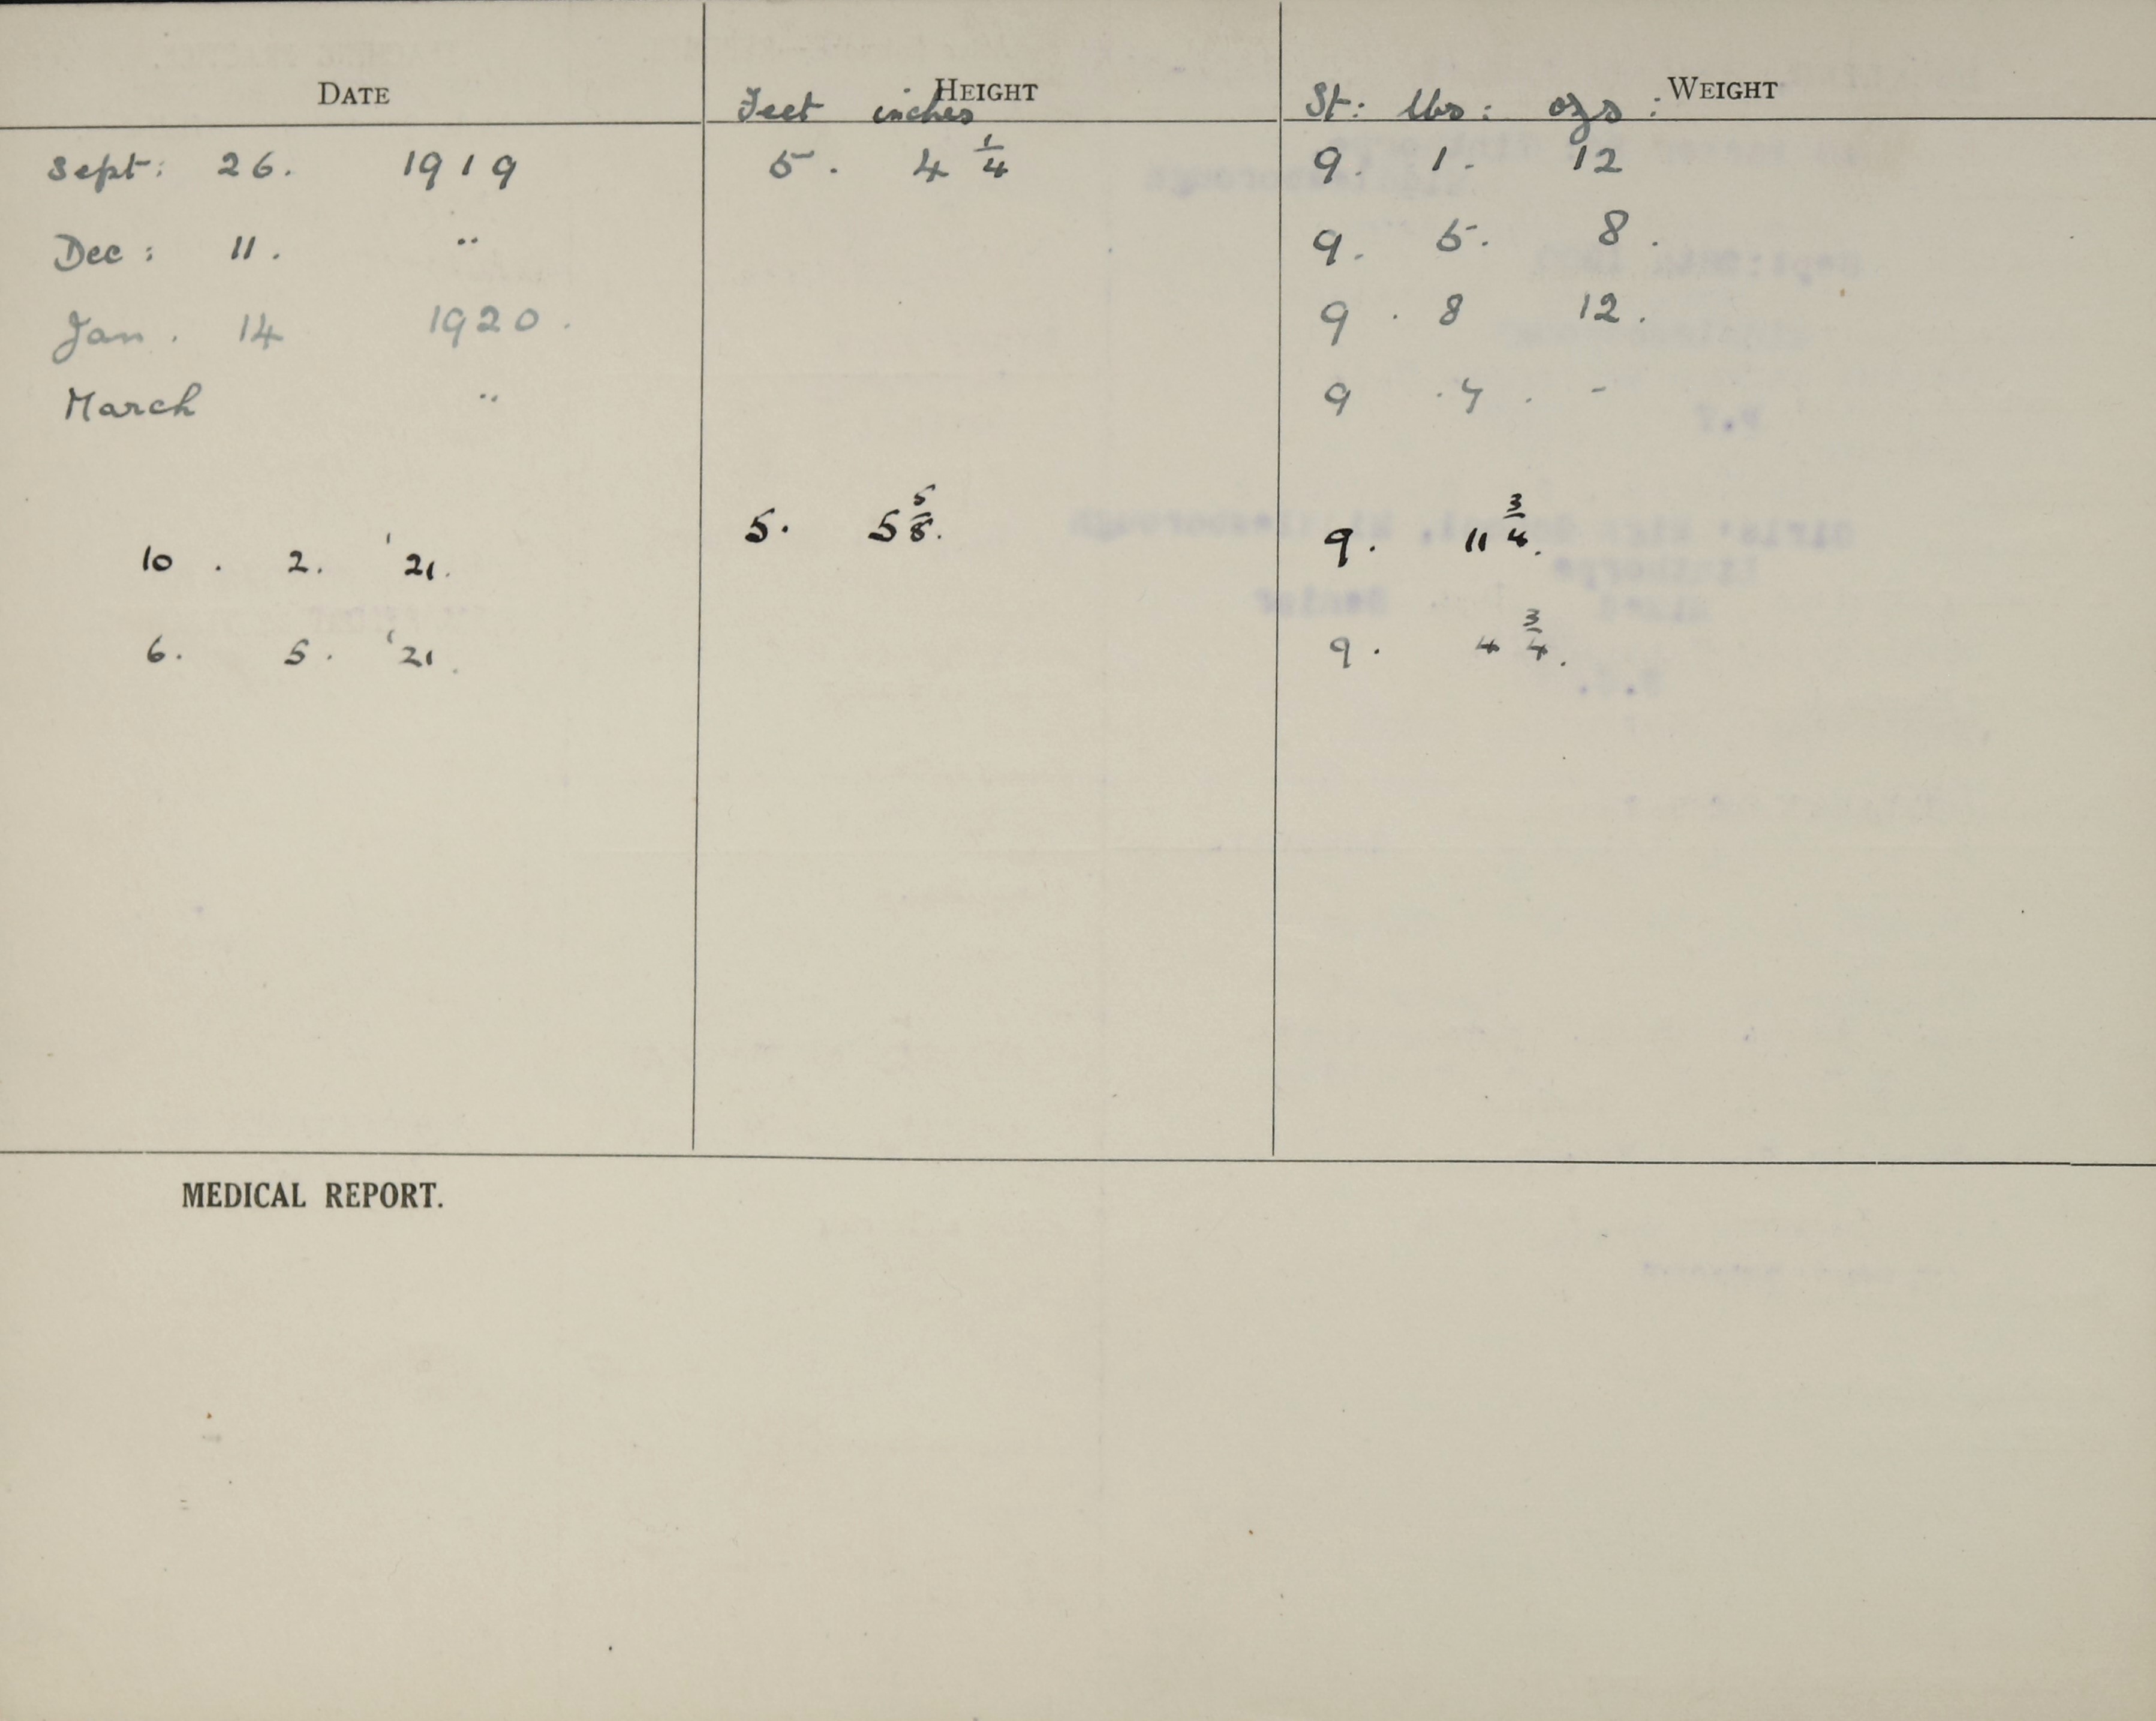 DATE HEIGHT WEIGHT
Feet inches St: lbs: ozs:
Sept: 26. 1919 5. 4 1/4 9. 1. 12
Dec: 11. " 9. 5. 8.
Jan. 14 1920. 9. 8 12.
March " 9 . 7 . -
10. 2. '21. 5. 5 5/8. 9. 11 3/4.
6. 5. '21. 9. 4 3/4.
MEDICAL REPORT.